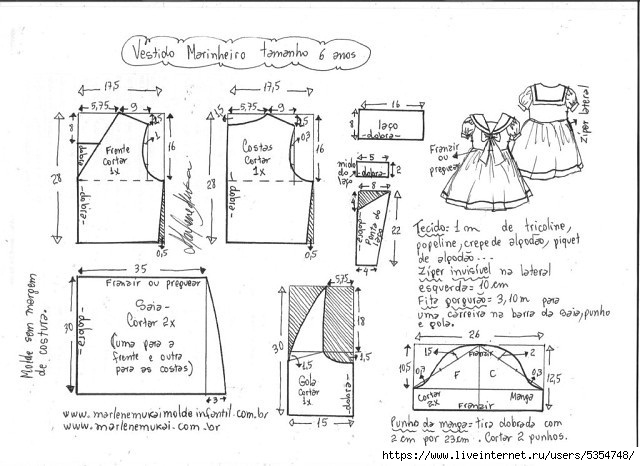 Vestido Marinheiro tamanho 6 anos
17,5
5,75 9
1,5
8
dobra
Frente
Cortar
1x
1
16
28
dobra
0,5
17,5
5,75 9
1,5
0,3
Costas
Cortar
1x
16
28
dobra
0,5
16
8
laço
dobra
5
miolo
do
laço
dobra
2
8
dobra
Ponta do
laço
22
4
Franzir
ou
preguear
Ziper lateral
Tecido= 1 m de tricoline,
popeline, crepe de algodão, piquet
de algodão...
Ziper invisível na lateral
esquerda= 10 cm
Fita gorgurão= 3,10 m para
uma carreira na barra da saia, punho
e gola.
Molde sem margem
de costura.
35
Franzir ou preguear
30
dobra
Saia-
Cortar 2x
(uma para a
frente e outra
para as costas)
3
5,75
30
18
1,5
1,5
Gola
Cortar
1x
dobra
15
26
15
Franzir
2
10,5
0,7
F
C
0,3
12,5
Cortar
2x
Manga
Franzir
Punho da manga= tira dobrada com
2 cm por 23 cm. Cortar 2 punhos.
www.marlenemukaimoldeinfantil.com.br
www.marlenemukai.com.br
https://www.liveinternet.ru/users/5354748/